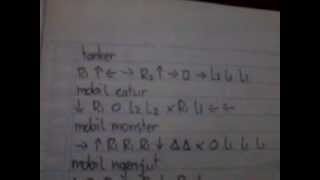 tanker
R1 ↑ ← → R2 ↑ → O → L2 L1 L1
mobil catur
↓ R1 O L2 L2 × R1 L1 ← ←
mobil monster
→ ↑ R1 R1 R1 ↓ Δ Δ × O L1 L1 L1
mobil ngenjut